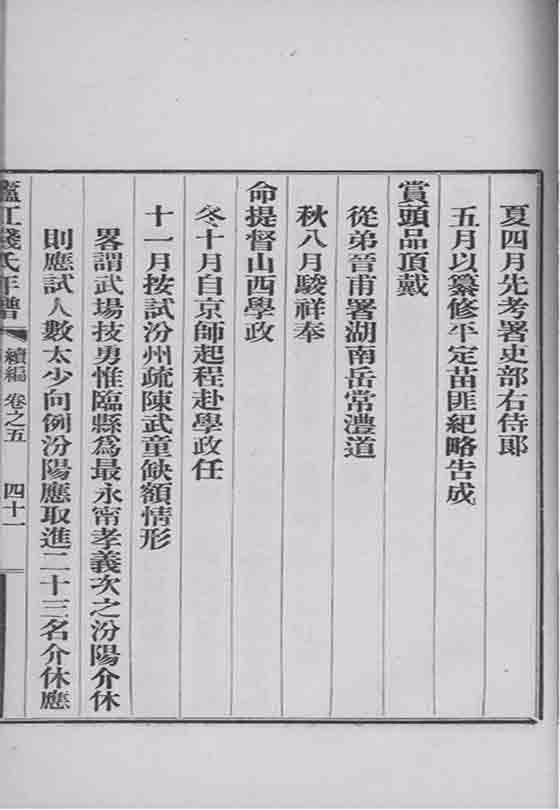 夏四月先考署吏部右侍郎
五月以纂修平定苗匪紀略告成
賞頭品頂戴
從弟晉甫署湖南岳常澧道
秋八月駿祥奉
命提督山西學政
冬十月自京師起程赴學政任
十一月按試汾州疏陳武童缺額情形
畧謂武場技勇惟臨縣爲最永甯孝義次之汾陽介休
則應試人數太少向例汾陽應取進二十三名介休應
廬江錢氏年譜 續編 卷之五 四十一